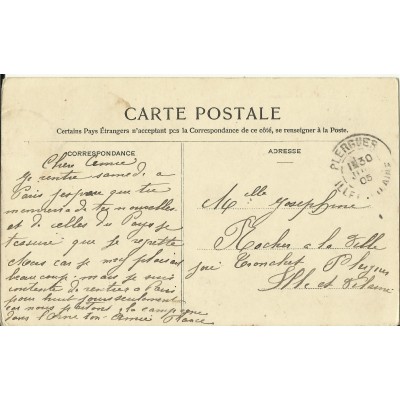 CARTE POSTALE
Certains Pays Étrangers n'acceptant pas la Correspondance de ce côté, se renseigner à la Poste.
CORRESPONDANCE
ADRESSE
PLERGUER
30
05
Chère Amie
je rentre samedi a
Paris j'espère que tu
me donnera de tes nouvelles
et de celles du Pays je
t'assure que je regrette
car je me plaisais
beaucoup mais je suis
contente de rentrer a Paris
pour huit jours seulement
car nous partons a la campagne
dans l'Orne ton Amie
Melle Josephine
Rocher a la Ville
Tronchet Plerguer
Ille et Vilaine